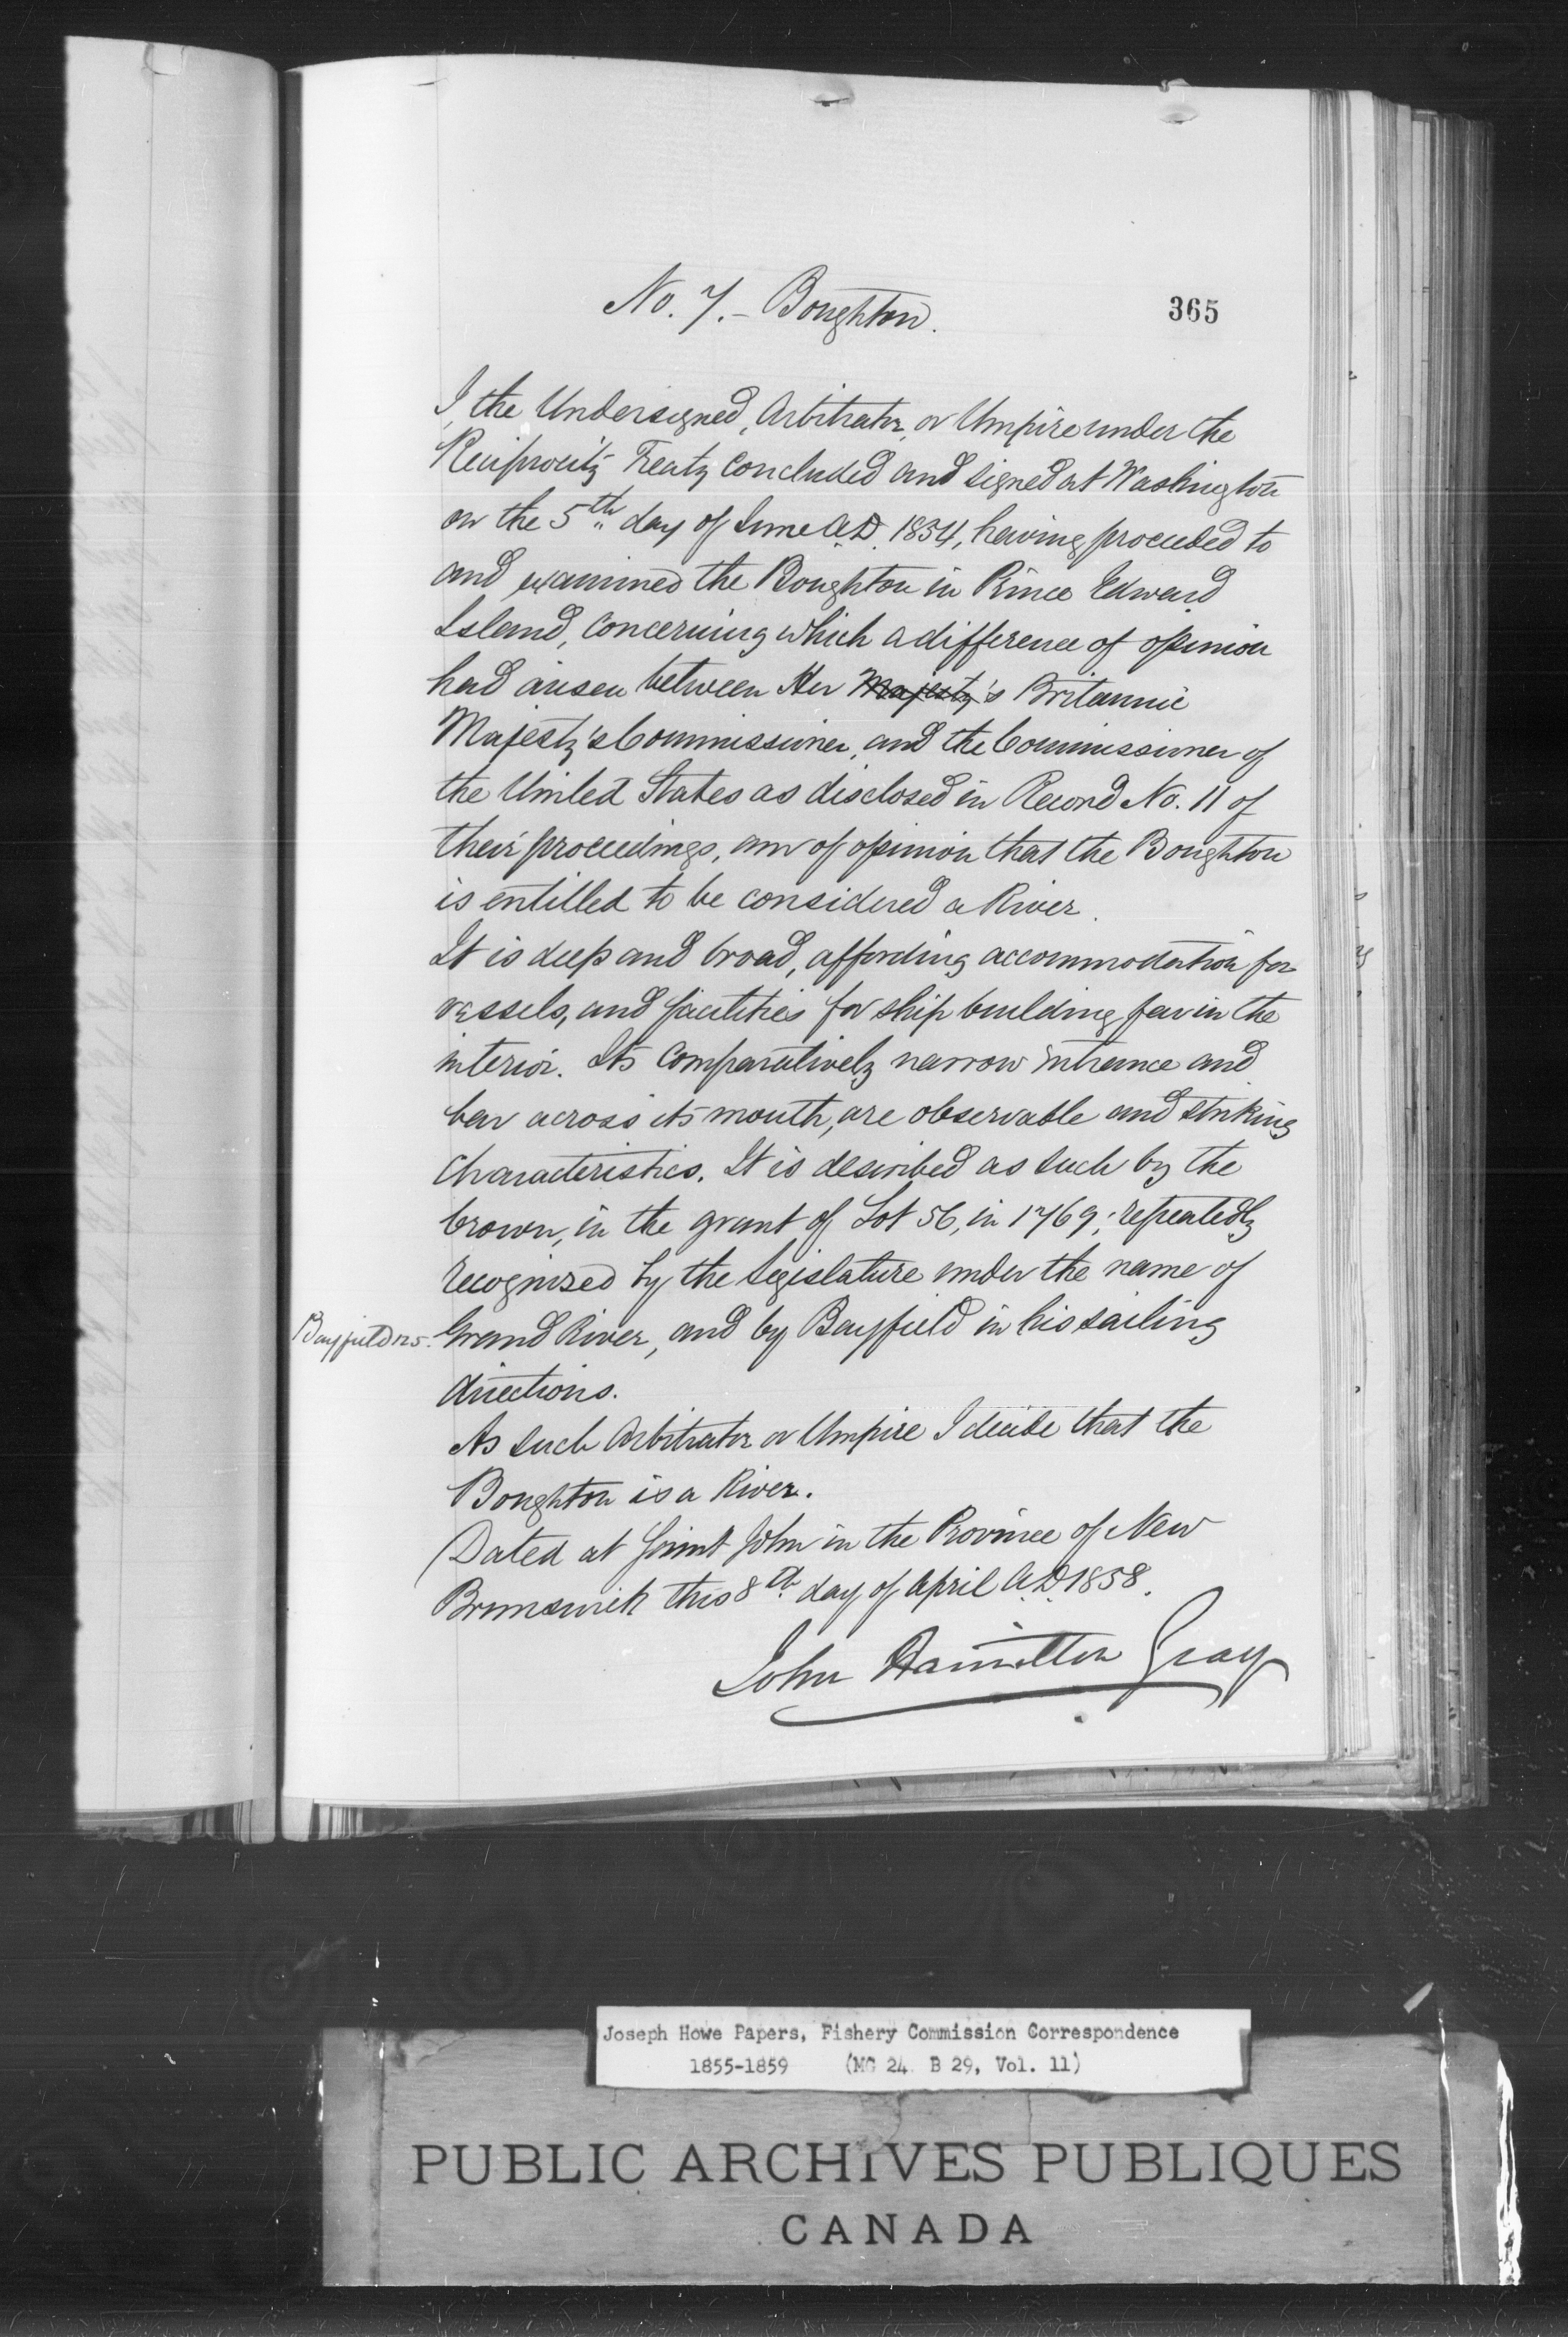 No. 7. - Boughton.
365
I, the Undersigned, Arbitrator, or Umpire under the
Reciprocity Treaty concluded and signed at Washington
on the 5th day of June A.D. 1854, having proceeded to
and examined the Boughton in Prince Edward
Island, concerning which a difference of opinion
had arisen between Her Majesty's Britannic
Majesty's Commissioner, and the Commissioner of
the United States as disclosed in Record No. 11 of
their proceedings, am of opinion that the Boughton
is entitled to be considered a River.
It is deep and broad, affording accommodation for
vessels, and facilities for ship building far in the
interior. Its comparatively narrow entrance and
bar across its mouth, are observable and striking
characteristics. It is described as such by the
Crown, in the grant of Lot 56, in 1769; repeatedly
recognized by the Legislature under the name of
Bayfield 125. Grand River, and by Bayfield in his sailing
directions.
As such Arbitrator or Umpire I decide that the
Boughton is a River.
Dated at Saint John in the Province of New
Brunswick this 8th day of April A.D. 1858.
John Hamilton Gray
Joseph Howe Papers, Fishery Commission Correspondence
1855-1859 (MG 24 B 29, Vol. 11)
PUBLIC ARCHIVES PUBLIQUES
CANADA